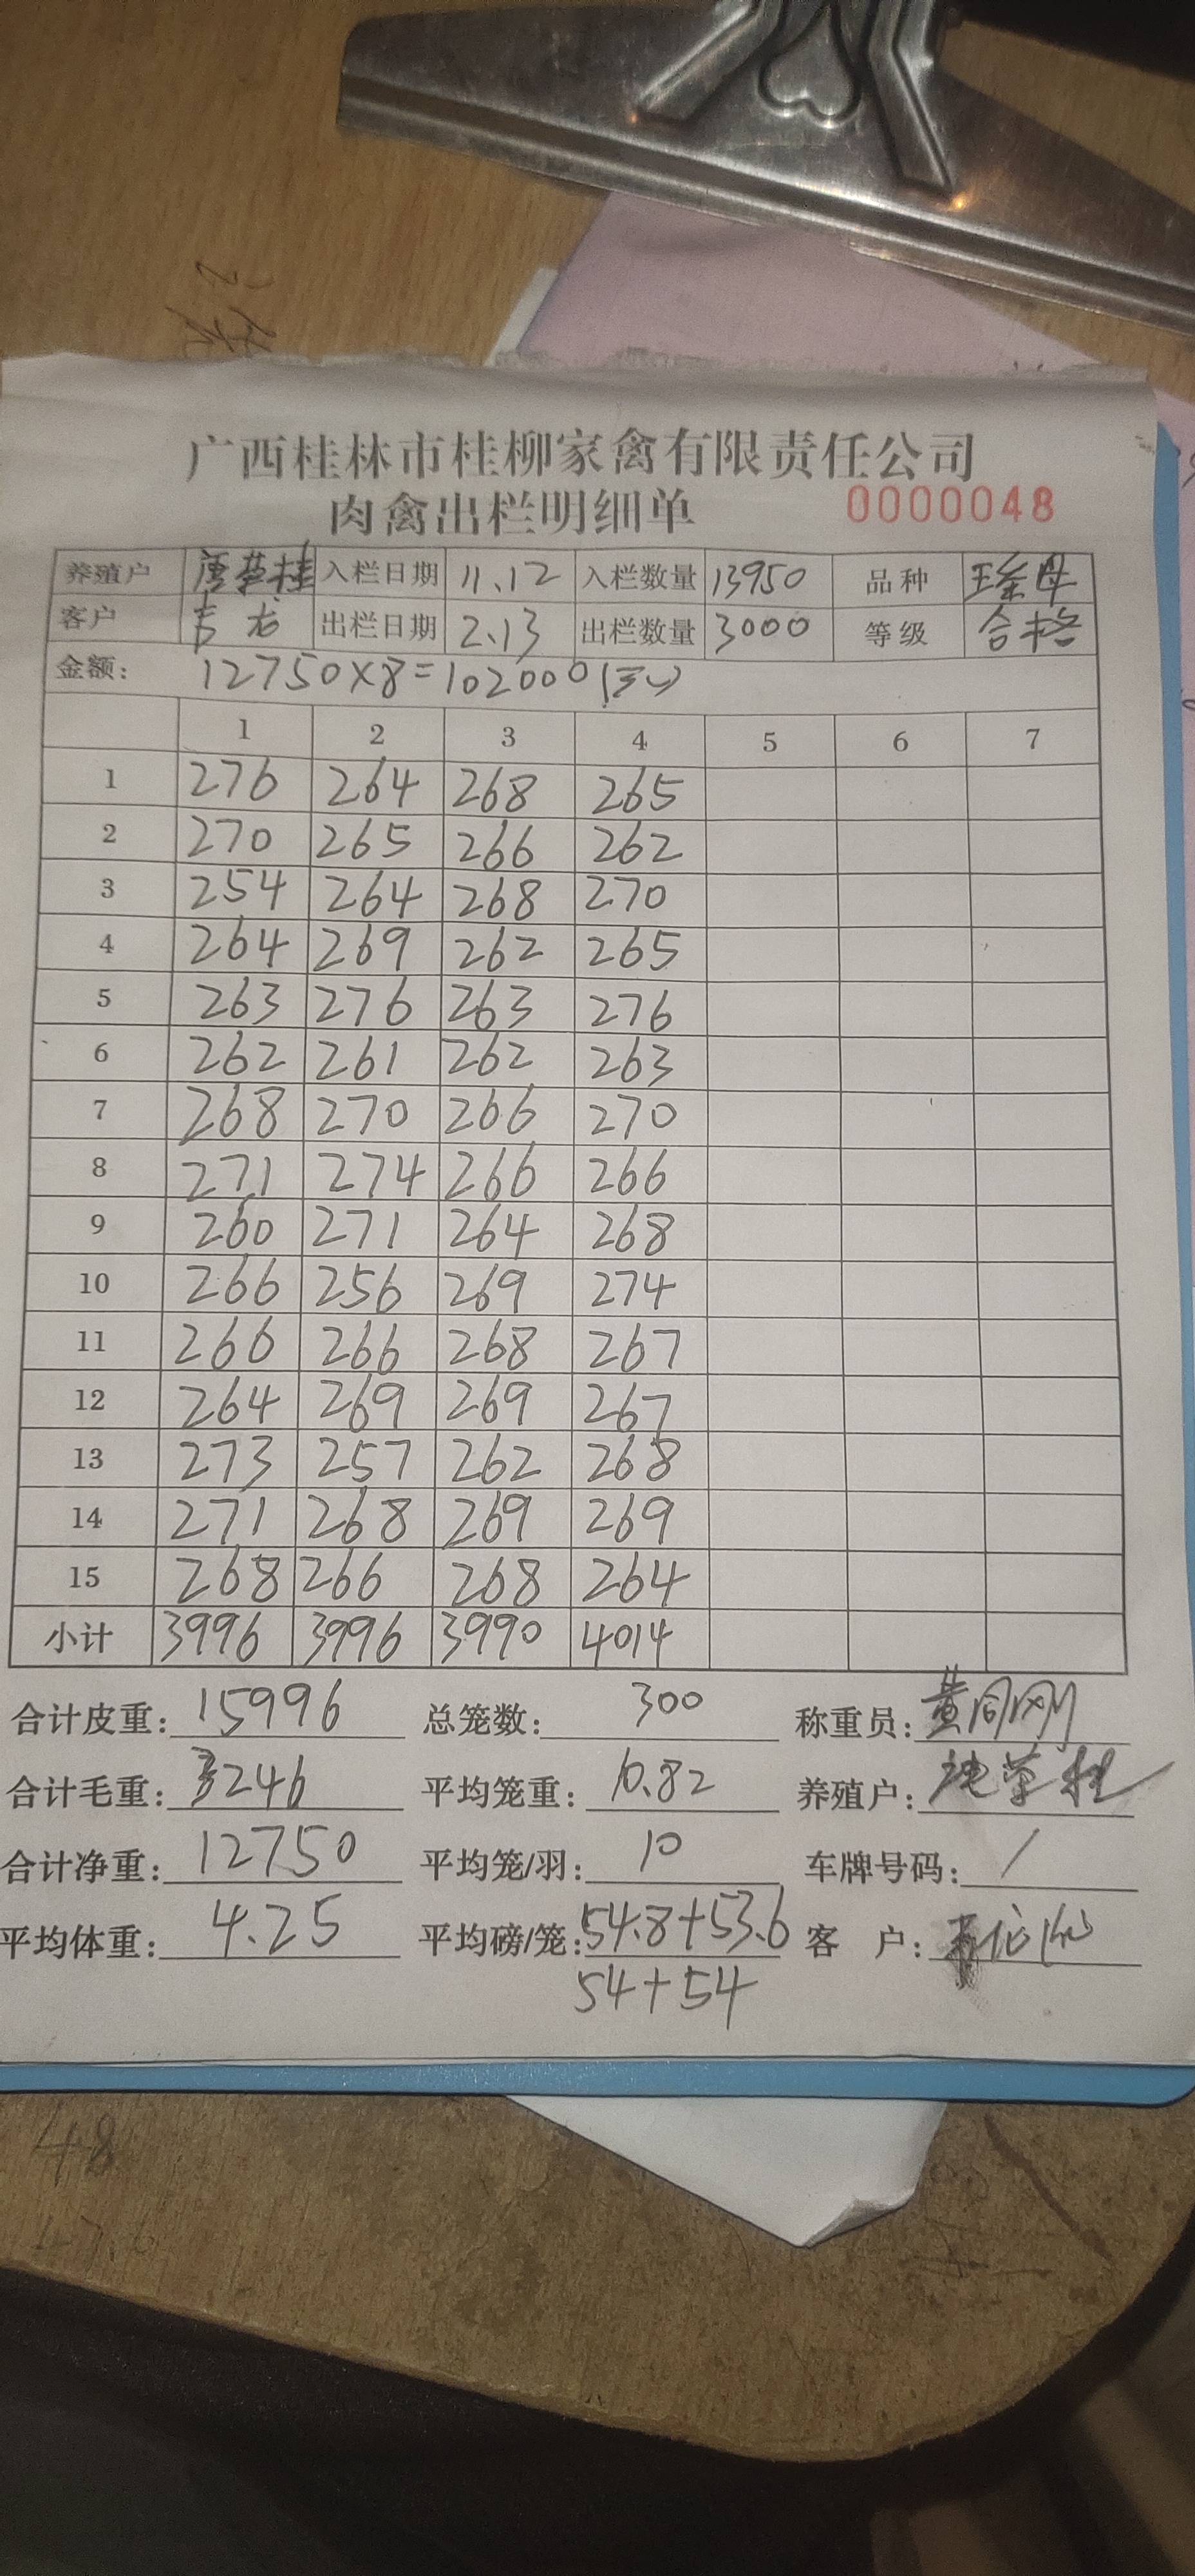 广西桂林市桂柳家禽有限责任公司
肉禽出栏明细单 0000048
养殖户 唐草桂 入栏日期 11.12 入栏数量 13950 品种
客户 吉龙 出栏日期 2.13 出栏数量 3000 等级 合格
金额: 12750×8=102000
1 2 3 4 5 6 7
1 276 264 268 265
2 270 265 266 262
3 254 264 268 270
4 264 269 262 265
5 263 276 263 276
6 262 261 262 263
7 268 270 266 270
8 271 274 266 266
9 260 271 264 268
10 266 256 269 274
11 266 266 268 267
12 264 269 269 267
13 273 257 262 268
14 271 268 269 269
15 268 266 268 264
小计 3996 3996 3990 4014
合计皮重: 15996 总笼数: 300 称重员: 黄同刚
合计毛重: 3246 平均笼重: 10.82 养殖户:
合计净重: 12750 平均笼/羽: 10 车牌号码: /
平均体重: 4.25 平均磅/笼: 54.8+53.6 客户:
54+54
48